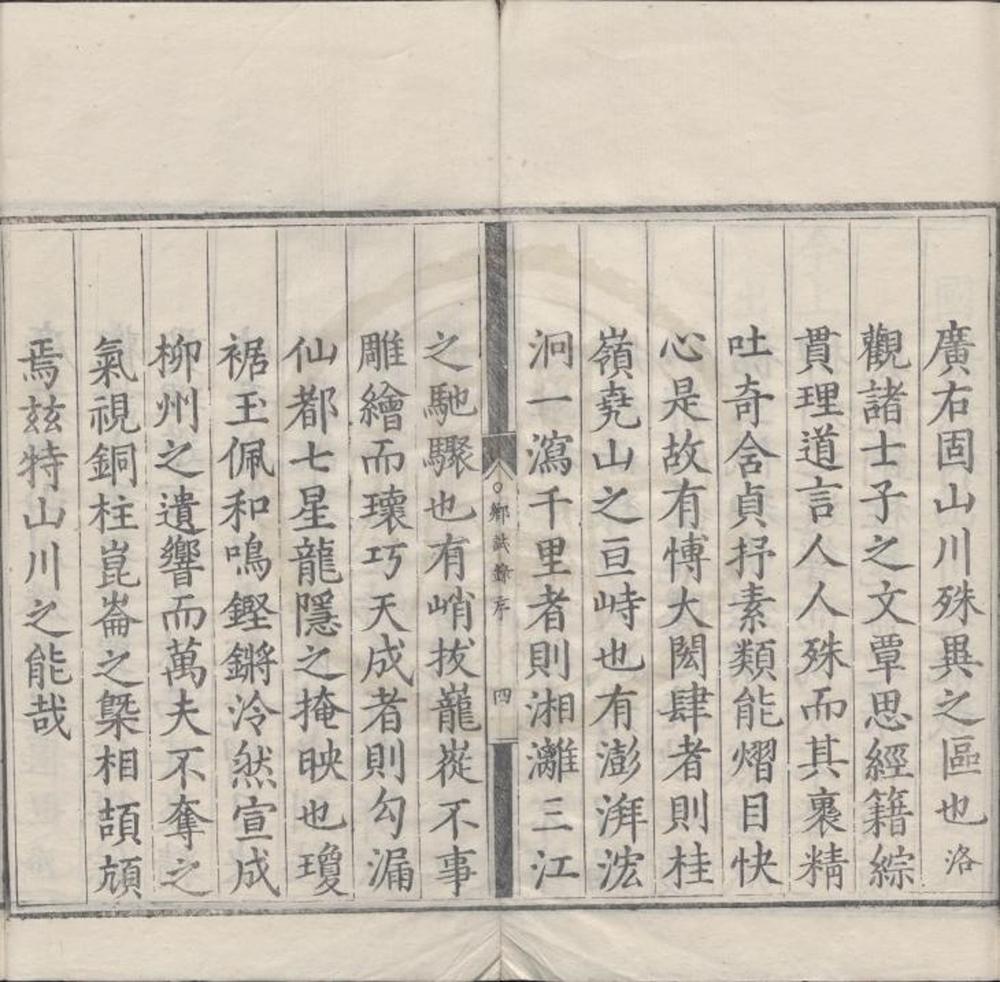 廣右固山川殊異之區也洛
觀諸士子之文覃思經籍綜
貫理道言人人殊而其裏精
吐奇含貞抒素類能熠目快
心是故有愽大閎肆者則桂
嶺堯山之亘峙也有澎湃浤
泂一瀉千里者則湘灕三江
鄉試錄序 四
之馳驟也有峭拔巃嵸不事
雕繪而瓌巧天成者則勾漏
仙都七星龍隱之掩映也瓊
裾玉佩和鳴鏗鏘泠然宣成
柳州之遺響而萬夫不奪之
氣視銅柱崑崙之槩相頡頏
焉玆特山川之能哉